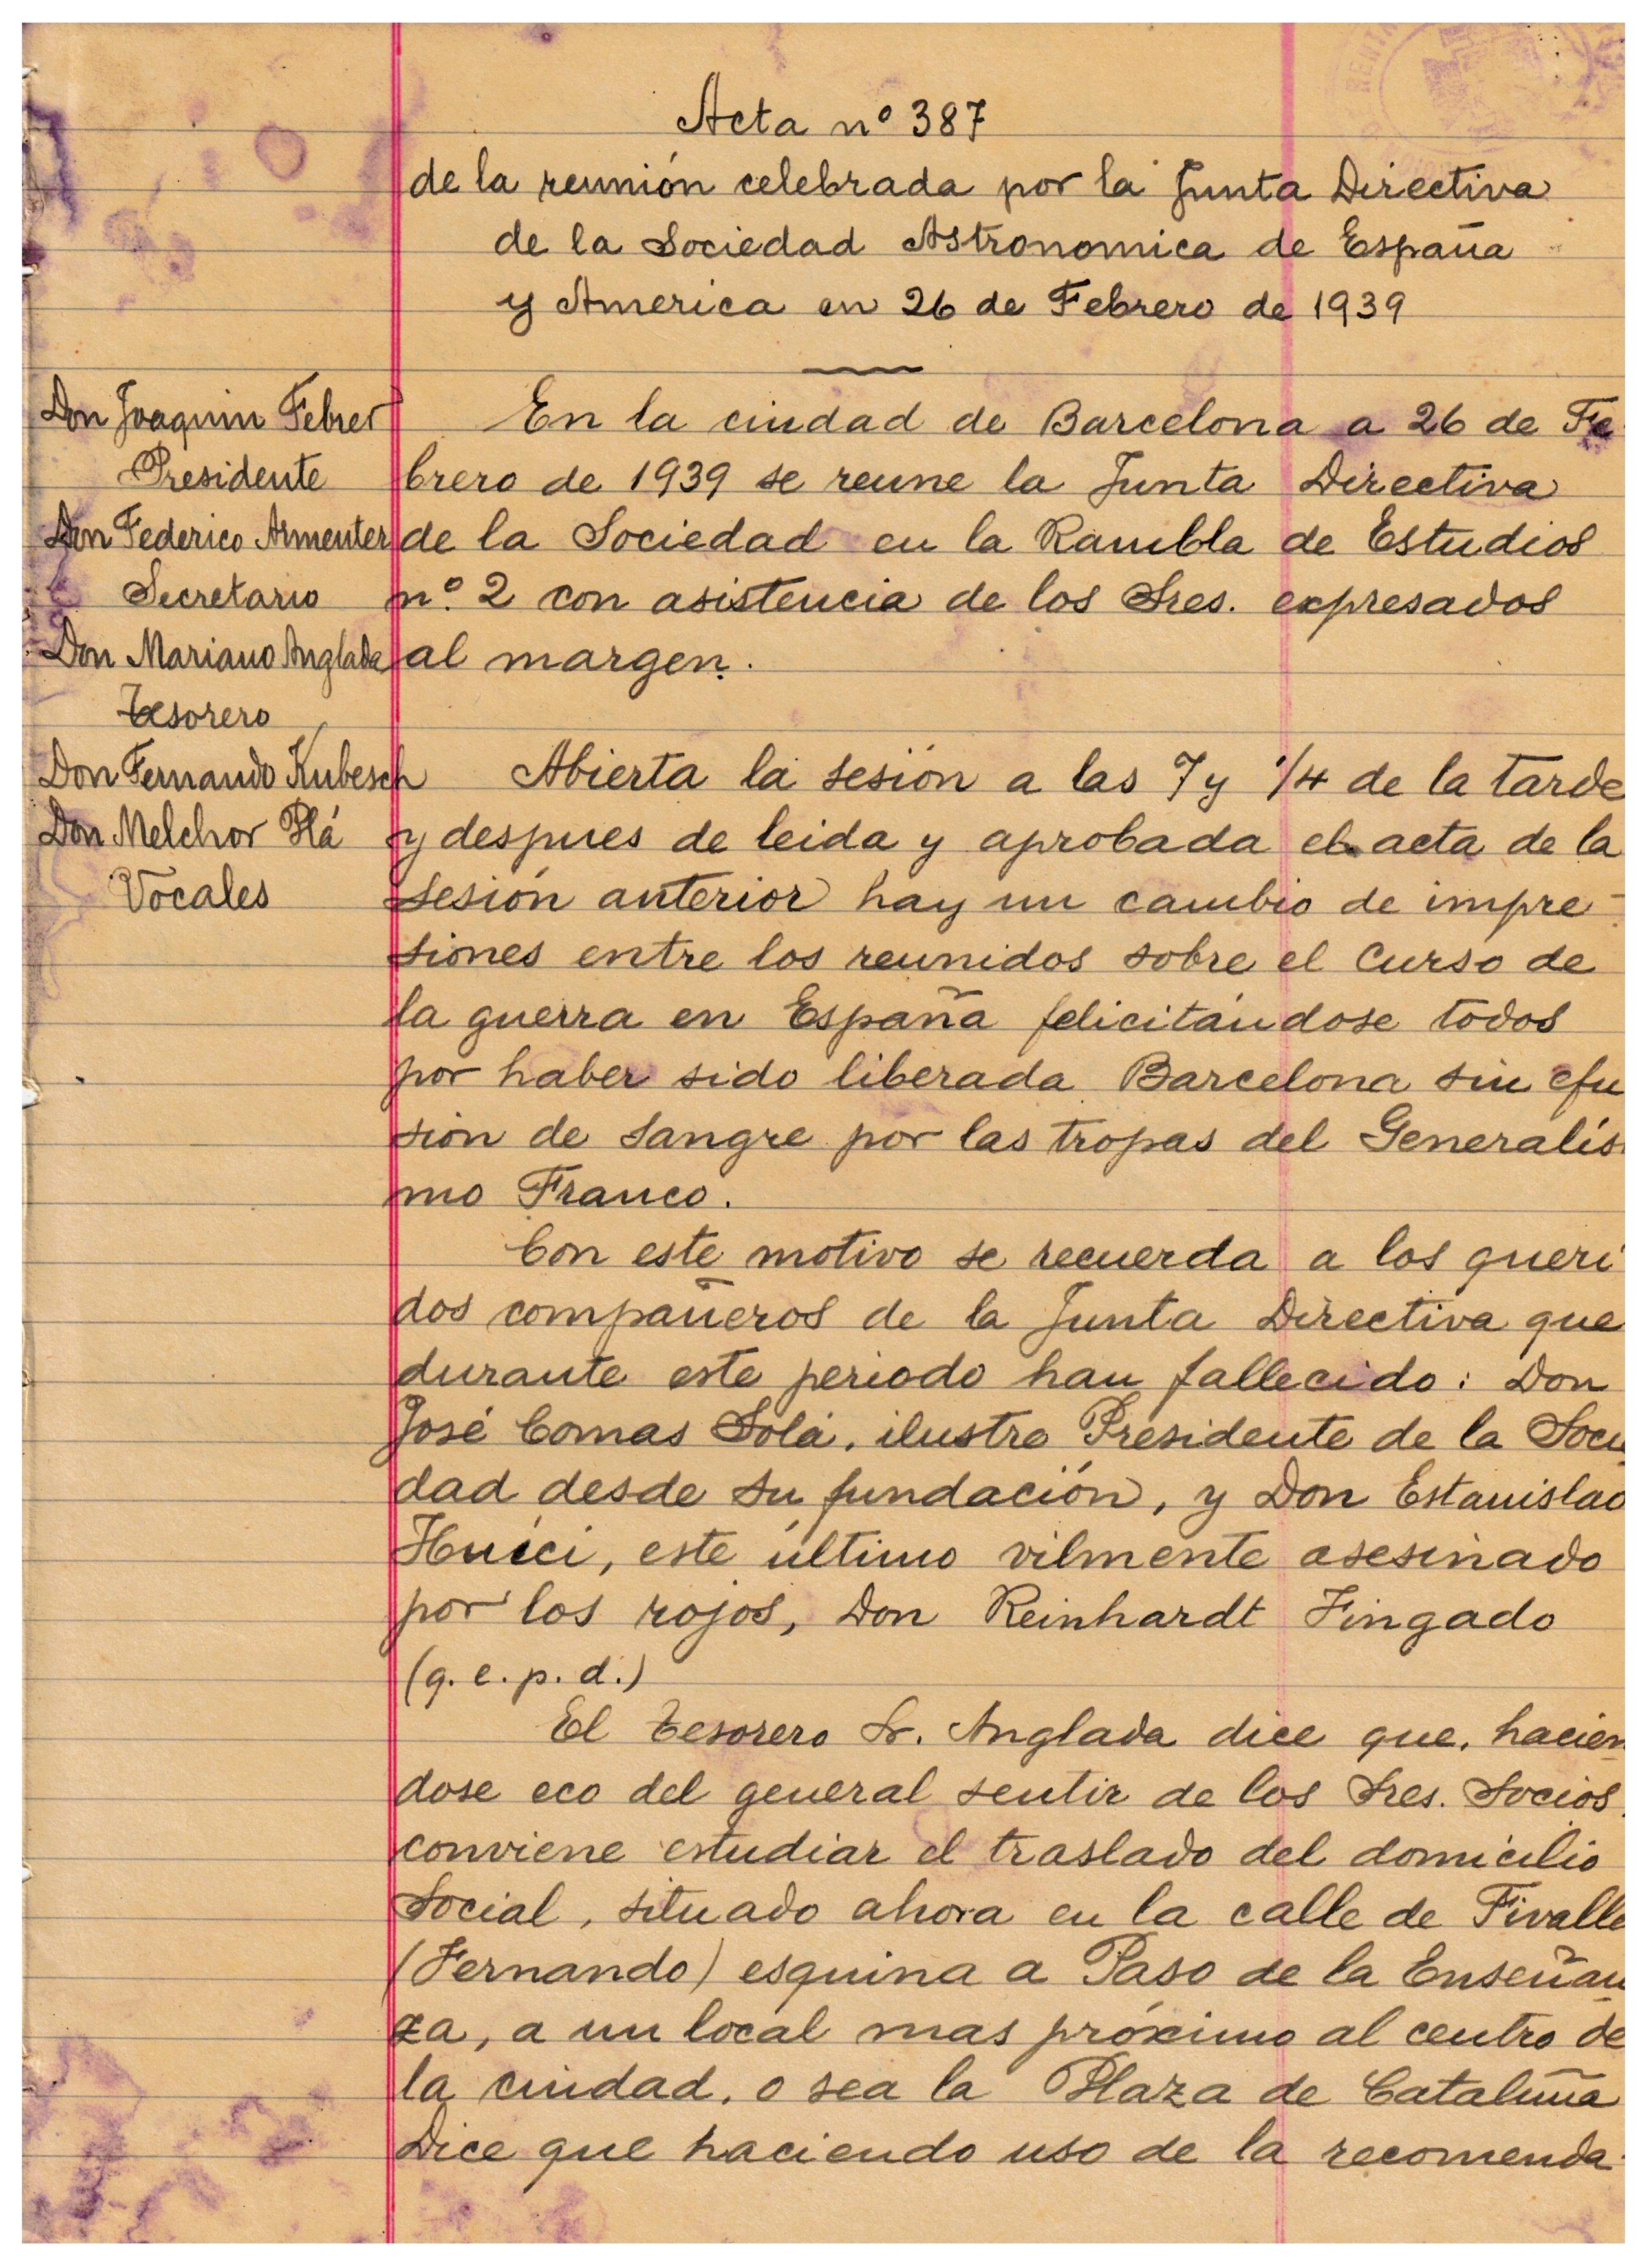 Acta nº 387
de la reunión celebrada por la Junta Directiva
de la Sociedad Astronomica de España
y America en 26 de Febrero de 1939
Don Joaquin Febrer
Presidente
Don Federico Armenter
Secretario
Don Mariano Anglada
Tesorero
Don Fernando Kubesch
Don Melchor Plá
Vocales
En la ciudad de Barcelona a 26 de Fe
brero de 1939 se reune la Junta Directiva
de la Sociedad en la Rambla de Estudios
nº. 2 con asistencia de los Sres. expresados
al margen.
Abierta la sesión a las 7 y 1/4 de la tarde
y despues de leida y aprobada el acta de la
sesión anterior hay un cambio de impre-
siones entre los reunidos sobre el curso de
la guerra en España felicitándose todos
por haber sido liberada Barcelona sin efu
sion de sangre por las tropas del Generalís
mo Franco.
Con este motivo se recuerda a los queri
dos compañeros de la Junta Directiva que
durante este periodo han fallecido: Don
José Comas Solá, ilustre Presidente de la Socie
dad desde su fundación, y Don Estanislao
Huici, este último vilmente asesinado
por los rojos, Don Reinhardt Fingado
(q. e. p. d.)
El tesorero Sr. Anglada dice que, hacien
dose eco del general sentir de los Sres. Socios,
conviene estudiar el traslado del domicilio
Social, situado ahora en la calle de Fivalle
(Fernando) esquina a Paso de la Enseñan
za, a un local mas próximo al centro de
la ciudad, o sea la Plaza de Cataluña
Dice que haciendo uso de la recomenda-